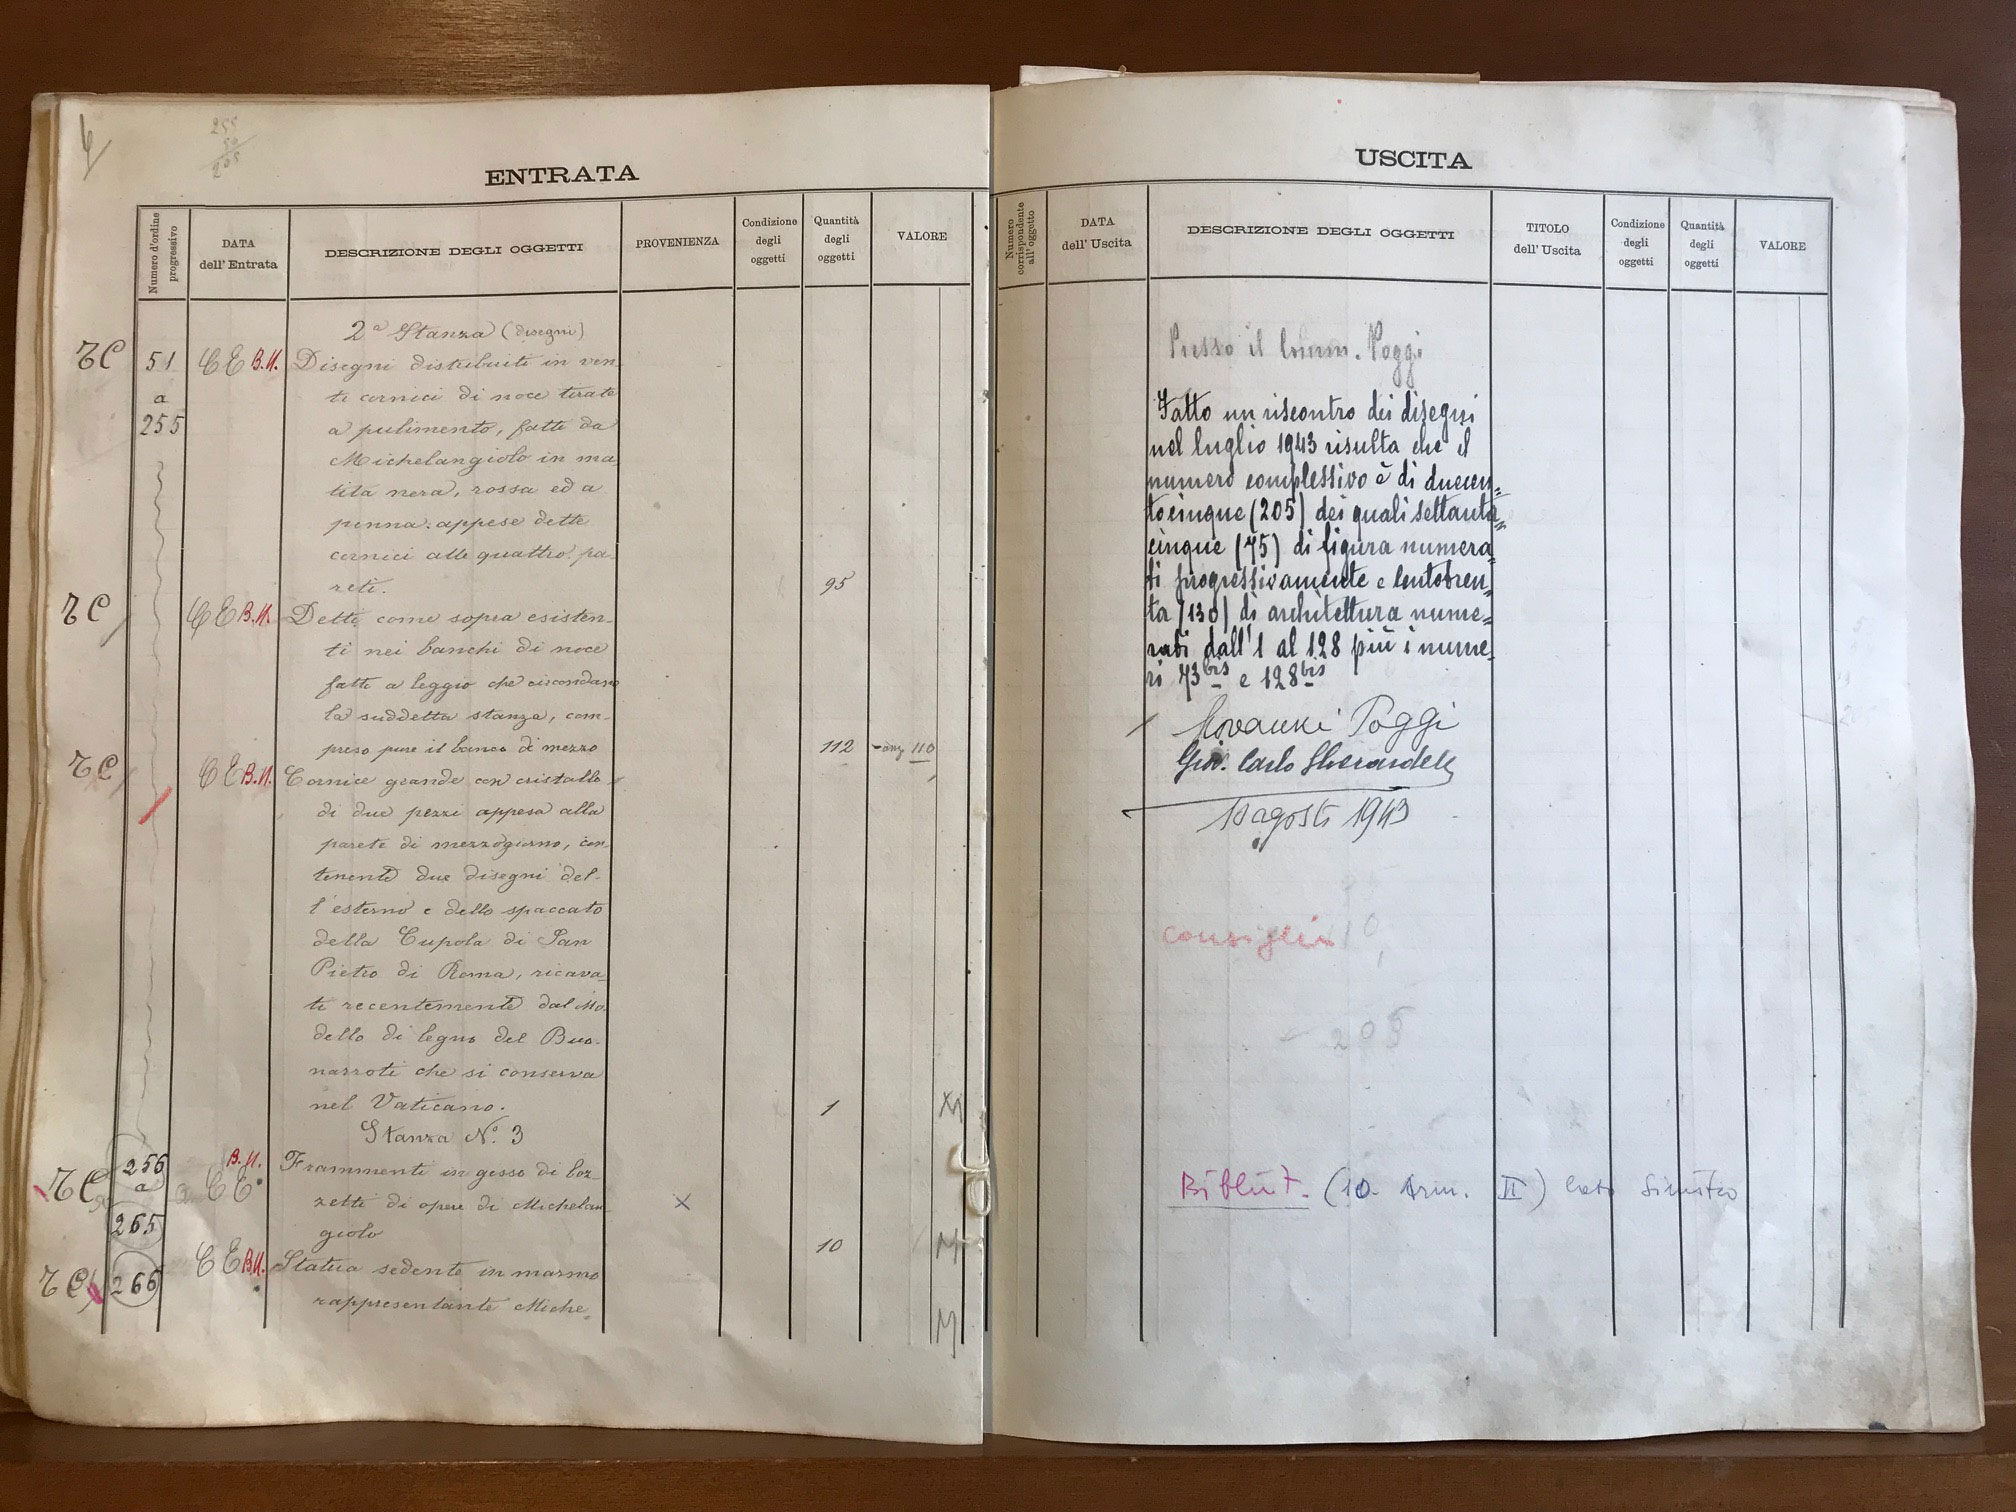 4
255
50
205
ENTRATA
Numero d'ordine progressivo
DATA dell' Entrata
DESCRIZIONE DEGLI OGGETTI
PROVENIENZA
Condizione degli oggetti
Quantità degli oggetti
VALORE
2ª Stanza (disegni)
TC 51 CE B.N. Disegni distribuiti in ven
a ti cornici di noce tirate
255 a pulimento, fatti da
Michelangiolo in ma
tita nera, rossa ed a
penna: appese dette
cornici alle quattro pa-
reti. 95
TC CE B.N. Detti come sopra esisten-
ti nei banchi di noce
fatti a leggio che circondano
la suddetta stanza, com-
preso pure il banco di mezzo 112 110
TC CE B.N. Cornice grande con cristallo
di due pezzi appesa alla
parete di mezzogiorno, con-
tenente due disegni del-
l'esterno e dello spaccato
della Cupola di San
Pietro di Roma, ricava-
ti recentemente dal Mo-
dello di legno del Buo-
narroti che si conserva
nel Vaticano. 1
Stanza Nº. 3
TC 256 B.N. CE Frammenti in gesso di boz-
a zetti di opere di Michelan- X
265 giolo 10 M
TC 266 CE B.N. Statua sedente in marmo
rappresentante Miche- M
USCITA
Numero corrispondente all' oggetto
DATA dell' Uscita
DESCRIZIONE DEGLI OGGETTI
TITOLO dell' Uscita
Condizione degli oggetti
Quantità degli oggetti
VALORE
Presso il Comm. Poggi
Fatto un riscontro dei disegni
nel luglio 1943 risulta che il
numero complessivo è di duecen=
tocinque (205) dei quali settanta=
cinque (75) di figura numera
ti progressivamente e centotren=
ta (130) di architettura nume=
rati dall'1 al 128 più i nume=
ri 73 bis e 128 bis
Giovanni Poggi
Giov. Carlo Gherardelli
10 agosto 1943
10
205
Bibliot. (10. Arm. II) lato sinistro